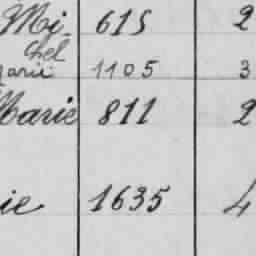 Mi- 615 2
chel
Marie 1105 3
Marie 811 2
ie 1635 4